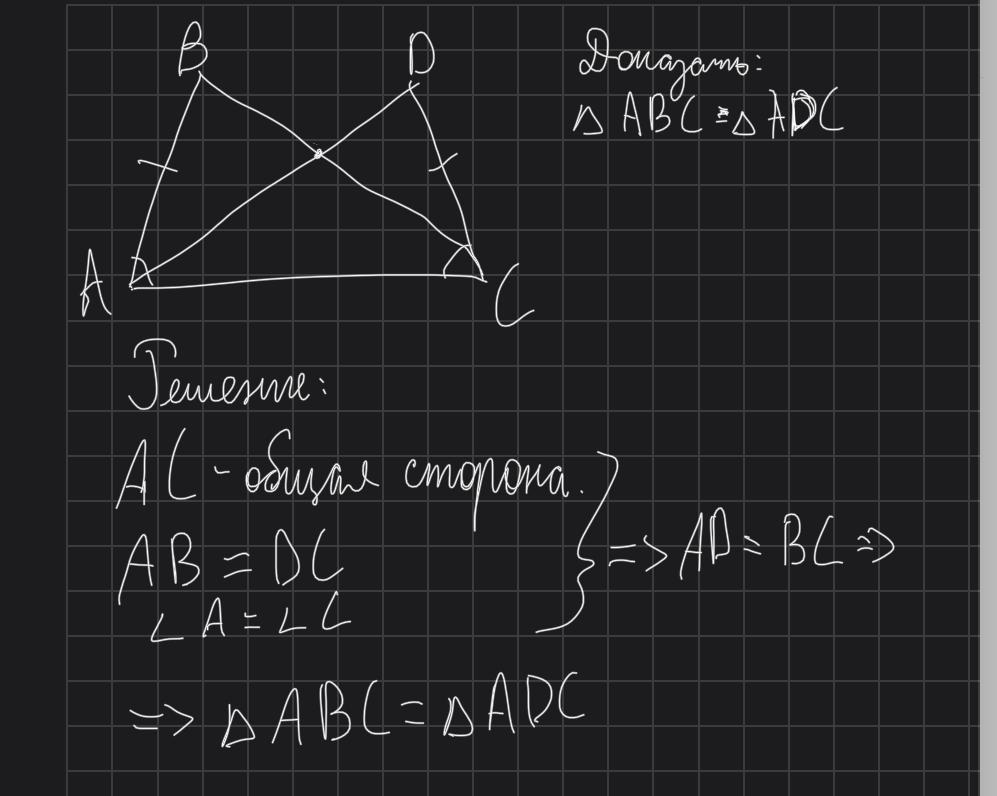 B D
Доказать:
△ ABC = △ ADC
A C
Решение:
AC - общая сторона.
AB = DC
∠ A = ∠ C
=> AD = BC =>
=> △ ABC = △ ADC